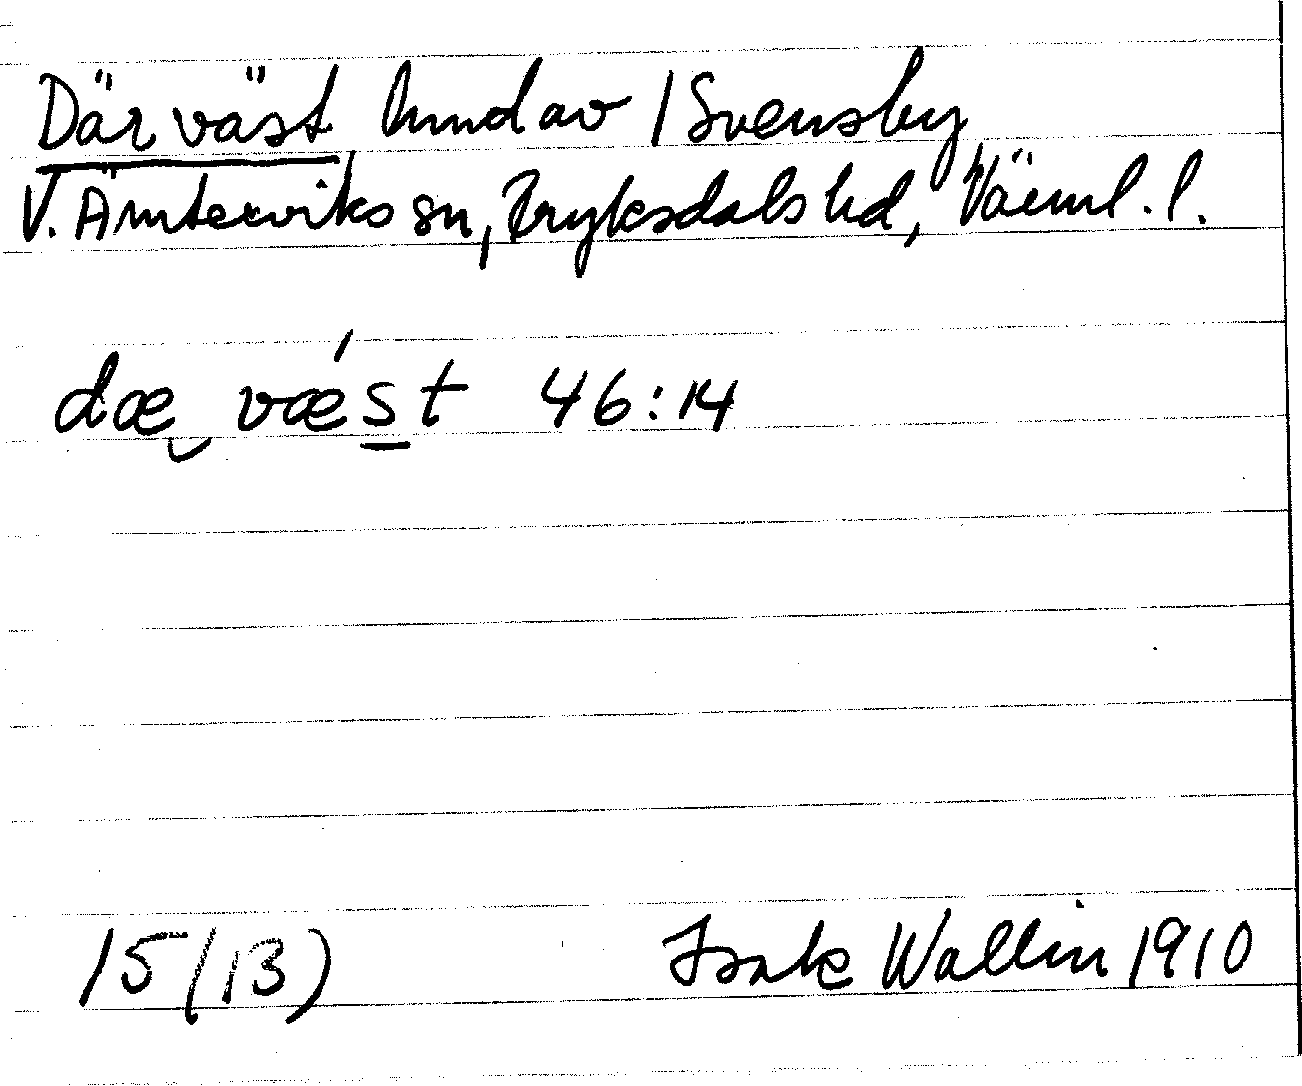 Där väst hmd av / Svensby
V. Ämterviks sn, Fryksdals hd, Värml. l.
dæ vǽst 46:14
15 (13)
Isak Wallin 1910